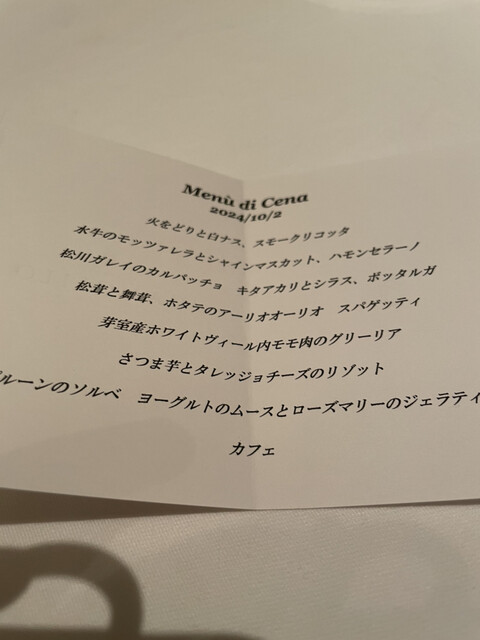 Menù di Cena
2024/10/2
火をどりと白ナス、スモークリコッタ
水牛のモッツァレラとシャインマスカット、ハモンセラーノ
松川ガレイのカルパッチョ　キタアカリとシラス、ボッタルガ
松茸と舞茸、ホタテのアーリオオーリオ　スパゲッティ
芽室産ホワイトヴィール内モモ肉のグリーリア
さつま芋とタレッジョチーズのリゾット
プルーンのソルベ　ヨーグルトのムースとローズマリーのジェラティ
カフェ